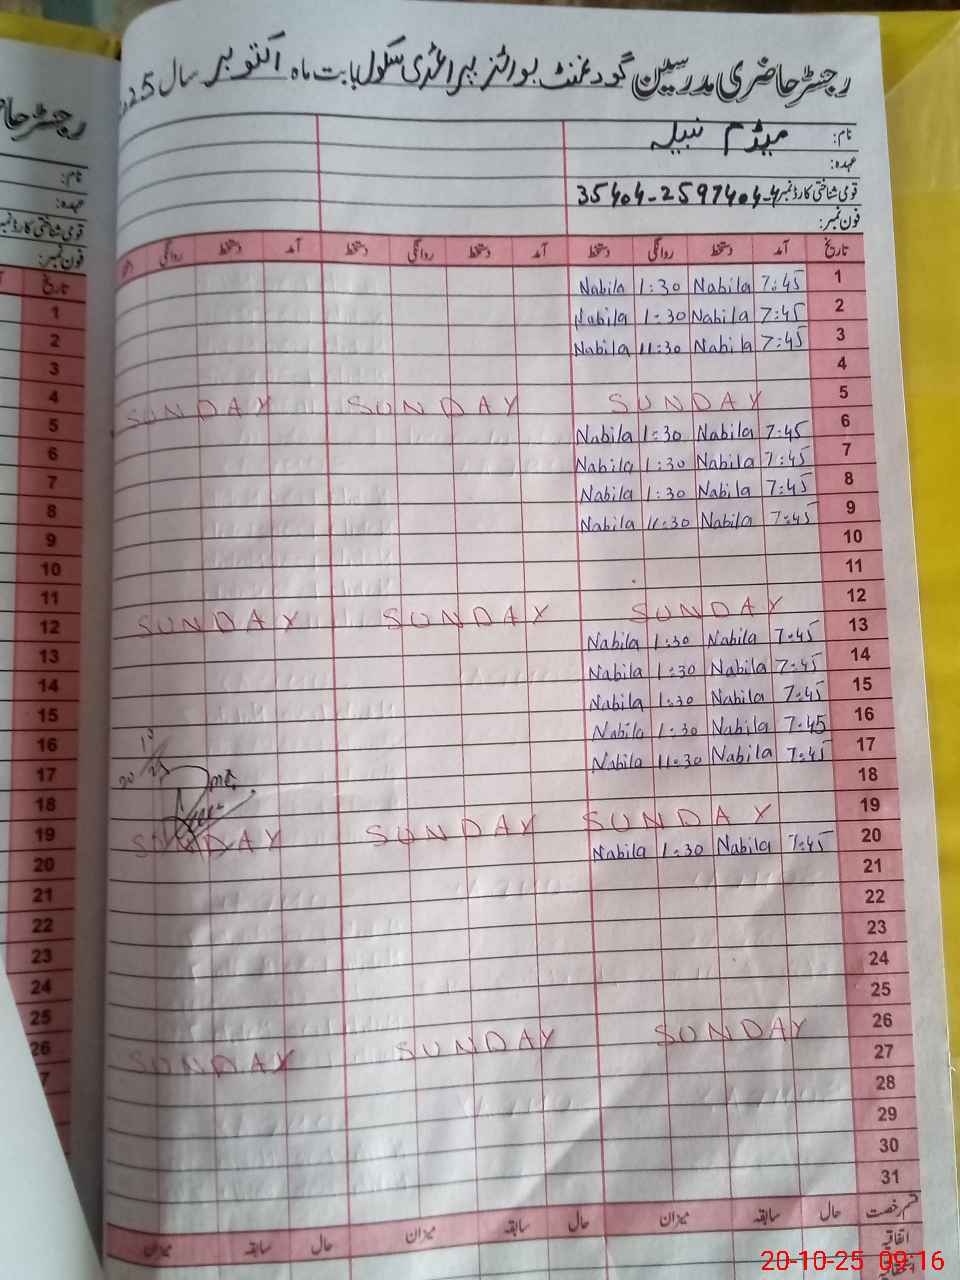 رجسٹر حاضری مدرسین گورنمنٹ بوائز پرائمری سکول بابت ماہ اکتوبر سال 2025
نام: میڈم نبیلہ
عہدہ:
قومی شناختی کارڈ نمبر 35404-2597404-4
فون نمبر:
تاریخ آمد دستخط روانگی دستخط آمد دستخط روانگی دستخط آمد دستخط روانگی
1 7:45 Nabila 1:30 Nabila
2 7:45 Nabila 1:30 Nabila
3 7:45 Nabila 11:30 Nabila
4
5 SUNDAY SUNDAY SUNDAY
6 7:45 Nabila 1:30 Nabila
7 7:45 Nabila 1:30 Nabila
8 7:45 Nabila 1:30 Nabila
9 7:45 Nabila 11:30 Nabila
10
11
12 SUNDAY SUNDAY SUNDAY
13 7:45 Nabila 1:30 Nabila
14 7:45 Nabila 1:30 Nabila
15 7:45 Nabila 1:30 Nabila
16 7:45 Nabila 1:30 Nabila
17 7:45 Nabila 11:30 Nabila
18
19 SUNDAY SUNDAY SUNDAY
20 7:45 Nabila 1:30 Nabila
21
22
23
24
25
26 SUNDAY SUNDAY SUNDAY
27
28
29
30
31
قسم رخصت حال سابقہ میزان حال سابقہ میزان حال سابقہ میزان
اتفاقیہ
رجسٹر حا
نام:
عہدہ:
قومی شناختی کارڈ نمبر
فون نمبر:
تاریخ
1
2
3
4
5
6
7
8
9
10
11
12
13
14
15
16
17
18
19
20
21
22
23
24
25
26
20-10-25 09:16